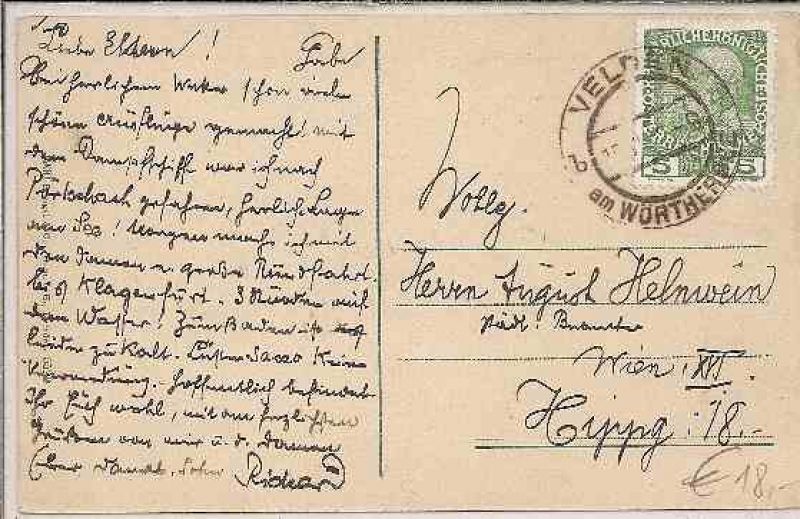 Liebe Eltern! Habe
bei herrlichem Wetter schon viele
schöne Ausflüge gemacht! mit
dem Dampfschiffe war ich nach
Pörtschach gefahren, herliche Lage
am See! Morgen mache ich mit
den Damen e. große Rundfahrt
bis Klagenfurt. 3 Stunden auf
dem Wasser! Zum Baden ist es
leider zu kalt. Keine
Verwendung. Hoffentlich befindet
Ihr Euch wohl, mit den herzlichsten
Grüßen von mir u. d. Damen
Euer dankb. Sohn Richard
VELDEN
am WÖRTHERSEE
5 5
Wohlg.
Herrn August Helnwein
städt. Beamter
Wien, XVI.
Hippg: 18.-
€ 18,-